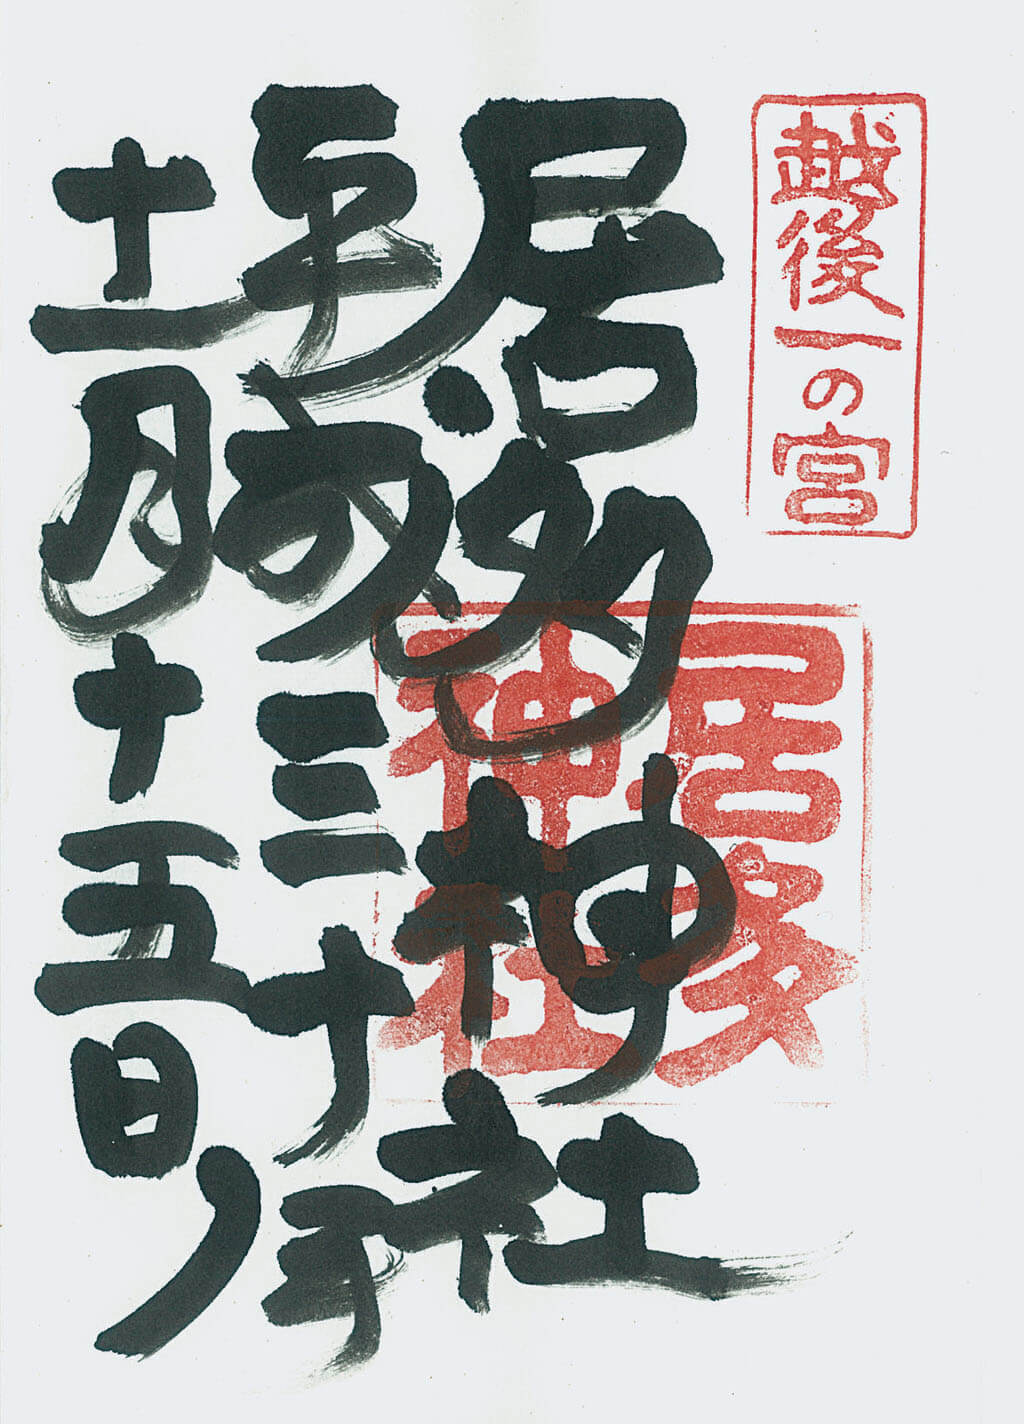 越後一の宮
居多
神社
居多神社
平成三十年
十一月十五日